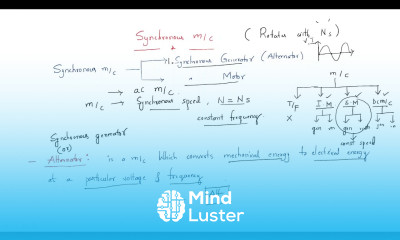 Synchronous m/c
( Rotates with 'Ns' )
Synchronous m/c
1. Synchronous Generator (Alternator)
" Motor
m/c
→ ac m/c.
T/F I M S M DC m/c
X gen m gen m
m/c → Synchronous speed, N = Ns
constant frequency
const speed
Synchronous generator
(or)
- Alternator: is a m/c which converts mechanical energy to electrical energy
at a particular voltage & frequency
Mind
Luster